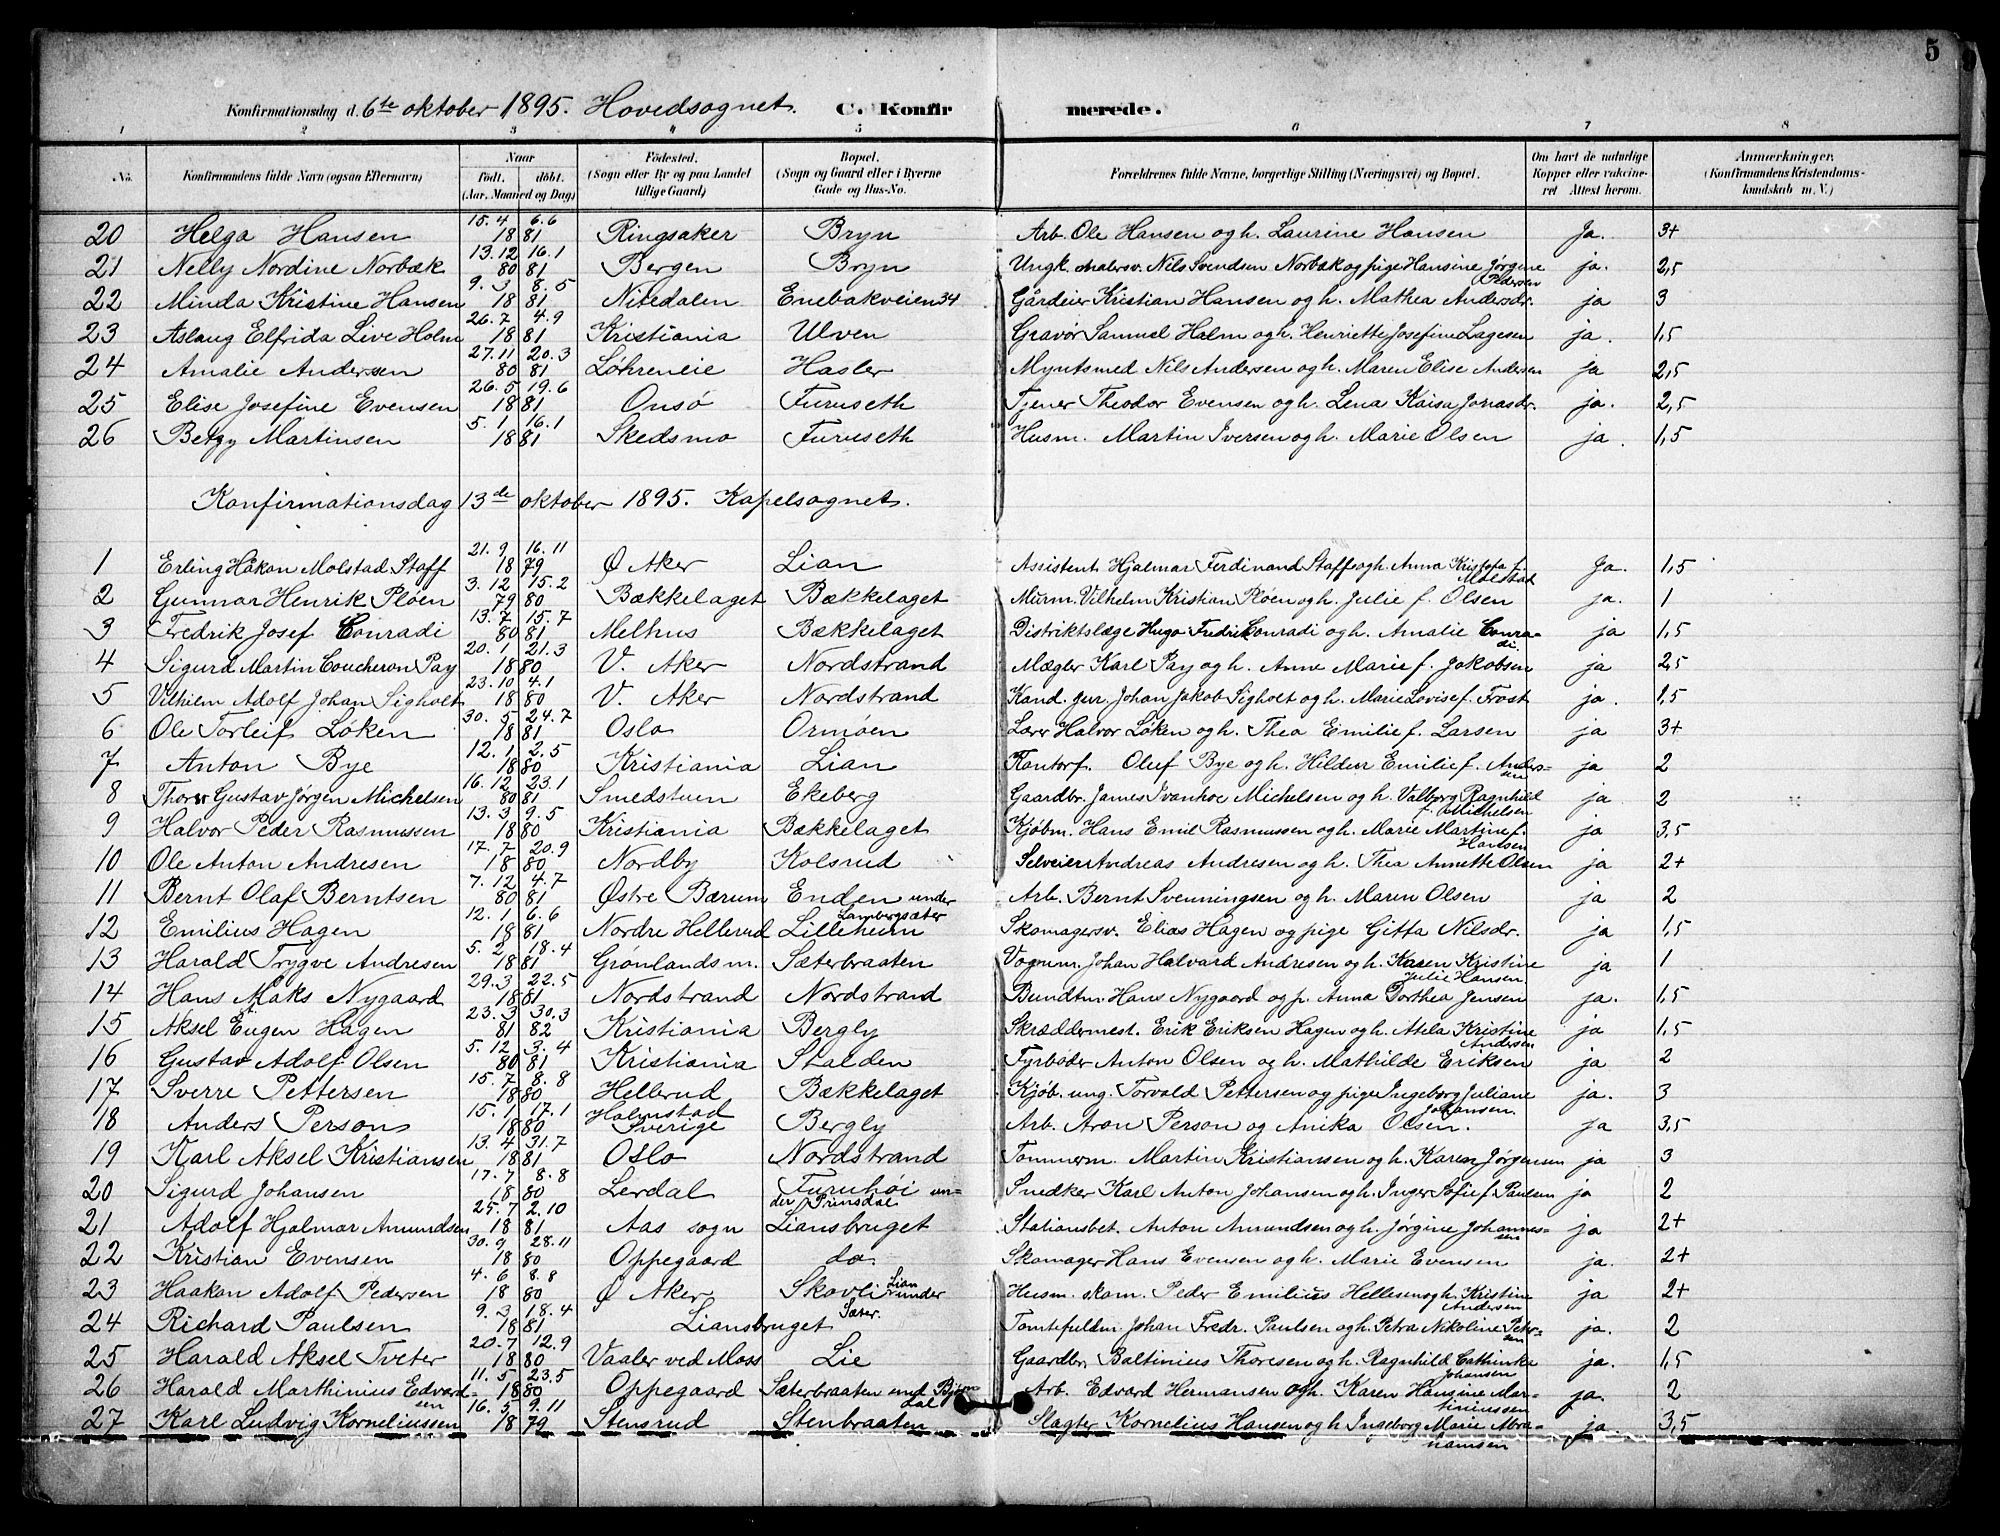 5
Konfirmationsdag d. 6te oktober 1895. Hovedsognet. C. Konfirmerede.
1 2 3 4 5 6 7 8
No. Konfirmandens fulde Navn (ogsaa Efternavn) Naar födt. döbt. (Aar, Maaned og Dag) Födested. (Sogn eller By og paa Landet tillige Gaard) Bopæl. (Sogn og Gaard eller i Byerne Gade og Hus-No. Forældrenes fulde Navne, borgerlige Stilling (Næringsvei) og Bopæl. Om havt de naturlige Kopper eller vakcineret Attest herom. Anmærkninger. (Konfirmandens Kristendomskundskab m. V.)
20 Helga Hansen 15.4 1881 6.6 Ringsaker Bryn Arb. Ole Hansen og h. Laurine Hansen Ja. 3+
21 Nelly Nordine Norbæk 13.12 80 16.1 81 Bergen Bryn Ungk. malersv. Nils Svendsen Norbæk og pige Hansine Jørgine Pedersen ja. 2,5
22 Minda Kristine Hansen 9.3 8.5 1881 Nitedalen Enebakveien 34 Gårdeier Kristian Hansen og h. Mathea Andersdr. ja 3
23 Aslaug Elfrida Live Holm 26.7 4.9 1881 Kristiania Ulven Gravør Samuel Holm og h. Henriette Josefine Lagesen ja. 1,5
24 Amalie Andersen 27.11 80 20.3 81 Løhreneie Hasler Myntsmed Nils Andersen og h. Maren Elise Andersen ja 2,5
25 Elise Josefine Evensen 26.5 19.6 1881 Onsö Furuseth Tjener Theodor Evensen og h. Lena Kaisa Jonasdr. ja. 2,5
26 Betzy Martinsen 5.1 16.1 1881 Skedsmo Furuseth Husm. Martin Iversen og h. Marie Olsen ja. 1,5
Konfirmationsdag 13de oktober 1895. Kapelsognet.
1 Erling Håkon Molstad Staff 21.9 16.11 1879 Ø Aker Lian Assistent Hjalmar Ferdinand Staff og h. Anna f. Molstad Ja. 1,5
2 Gunnar Henrik Pløen 3.12 79 15.2 80 Bækkelaget Bækkelaget Murm. Vilhelm Kristian Pløen og h. Julie f. Olsen ja. 1
3 Fredrik Josef Conradi 13.7 80 15.7 81 Melhus Bækkelaget Distriktslæge Hugo Fredrik Conradi og h. Amalie Conradi ja 1,5
4 Sigurd Martin Coucheron Pay 20.1 21.3 1880 V. Aker Nordstrand Mægler Karl Pay og h. Anne Marie f. Jakobsen ja 2,5
5 Vilhelm Adolf Johan Sigholt 23.10 4.1 1880 V. Aker Nordstrand Kand. Johan Jakob Sigholt og h. Marie Lovise f. Frost ja. 1,5
6 Ole Torleif Løken 30.5 24.7 1881 Oslo Ormøen Lærer Halvor Løken og h. Thea Emilie f. Larsen ja 3+
7 Anton Bye 12.1 2.5 1880 Kristiania Lian Kontorf. Oluf Bye og h. Hildur Emilie f. Anderssen ja 2
8 Thorer Gustav Jørgen Michelsen 16.12 80 23.1 81 Smedstuen Ekeberg Gaardbr. James Ivanhoe Michelsen og h. Valborg Ragnhild f. Michelsen ja 2
9 Halvor Peder Rasmussen 13.3 9.5 1880 Kristiania Bækkelaget Kjøbm. Hans Emil Rasmussen og h. Marie Martine f. Hansen ja 3,5
10 Ole Anton Andresen 17.7 20.9 1880 Nordby Kolsrud Selveier Andreas Andresen og h. Thea Annette Olsen ja 2+
11 Bernt Olaf Berntsen 7.12 80 4.7 81 Østre Bærum Enden under Lambergsæter Arb. Bernt Svenningsen og h. Maren Olsen ja 2
12 Emilius Hagen 12.1 6.6 1881 Nordre Hellerud Lilleheim Skomagersv. Elias Hagen og pige Gitta Nilsdr. ja 1,5
13 Harald Trygve Andresen 5.2 18.4 1881 Grønlands m. Sæterbraaten Vognm. Johan Halvard Andresen og h. Karen Kristine Julie Hansen ja 1
14 Hans Maks Nygaard 29.3 22.5 1881 Nordstrand Nordstrand Bundtm. Hans Nygaard og p. Anna Dorthea Jensen ja. 1,5
15 Aksel Eugen Hagen 23.3 81 30.3 82 Kristiania Bergly Skræddermest. Erik Eriksen Hagen og h. Kristine Andersen ja 1,5
16 Gustav Adolf Olsen 5.12 80 3.4 81 Kristiania Stalden Fyrbøder Anton Olsen og h. Mathilde Eriksen ja 2
17 Sverre Pettersen 15.7 8.8 1880 Hellerud Bækkelaget Kjøb. ung. Torvald Pettersen og pige Ingeborg Juliane Johansen. ja. 3
18 Anders Person 15.1 17.1 1880 Halmstad Sverige Bergly Arb. Aron Person og Anika Olsen. ja 3,5
19 Karl Aksel Kristiansen 13.4 31.7 1881 Oslo Nordstrand Tømmerm. Martin Kristiansen og h. Karen Jørgensen ja 3
20 Sigurd Johansen 17.7 8.8 1880 Lerdal Furuhøi under Prinsdal Snedker Karl Anton Johansen og h. Inger Sofie f. Paulsen ja 2
21 Adolf Hjalmar Amundsen 25.7 2.10 1881 Aas sogn Liansbruget Stationsbet. Anton Amundsen og h. Jørgine Johannessen ja 2+
22 Kristian Evensen 30.9 28.11 1880 Oppegaard do. Skomager Hans Evensen og h. Marie Evensen ja. 2+
23 Haakon Adolf Pedersen 4.6 8.8 1880 Ø Aker Skovli under Lian Husm. skom. Peder Emilius Hellesen og h. Kristine Andersen ja 2+
24 Richard Paulsen 9.3 18.4 1881 Liansbruget Sæter. Tomtefuldm. Johan Fredr. Paulsen og h. Petra Nikoline Petersen ja. 2
25 Harald Aksel Tveter 20.7 12.9 1880 Vaaler ved Moss Lie Gaardbr. Baltinius Thoresen og h. Ragnhild Cathinka Johansen ja. 1,5
26 Harald Marthinius Edvardsen 11.5 23.5 1880 Oppegaard Sæterbraaten und. Bjørndal Arb. Edvard Hermansen og h. Karen Hansine Martiniussen ja. 2
27 Karl Ludvig Korneliussen 16.5 9.11 1879 Stensrud Stenbraaten Slagter Kornelius Hansen og h. Ingeborg Marie Abrahamsen ja. 3,5